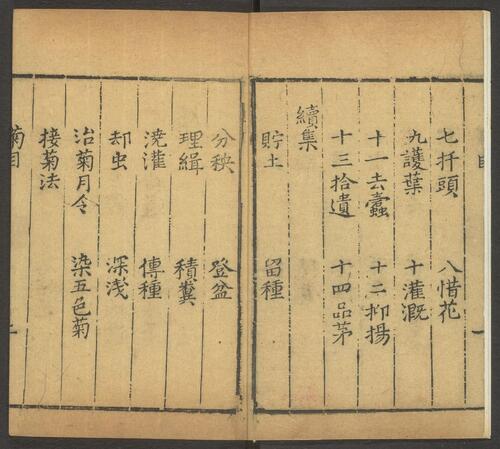 七扦頭 八惜花
九護葉 十灌溉
十一去蠹 十二抑揚
十三拾遺 十四品茅
續集
貯土 留種
分秧 登盆
理緝 積糞
澆灌 傳種
却虫 深淺
治菊月令 染五色菊
接菊法
菊目